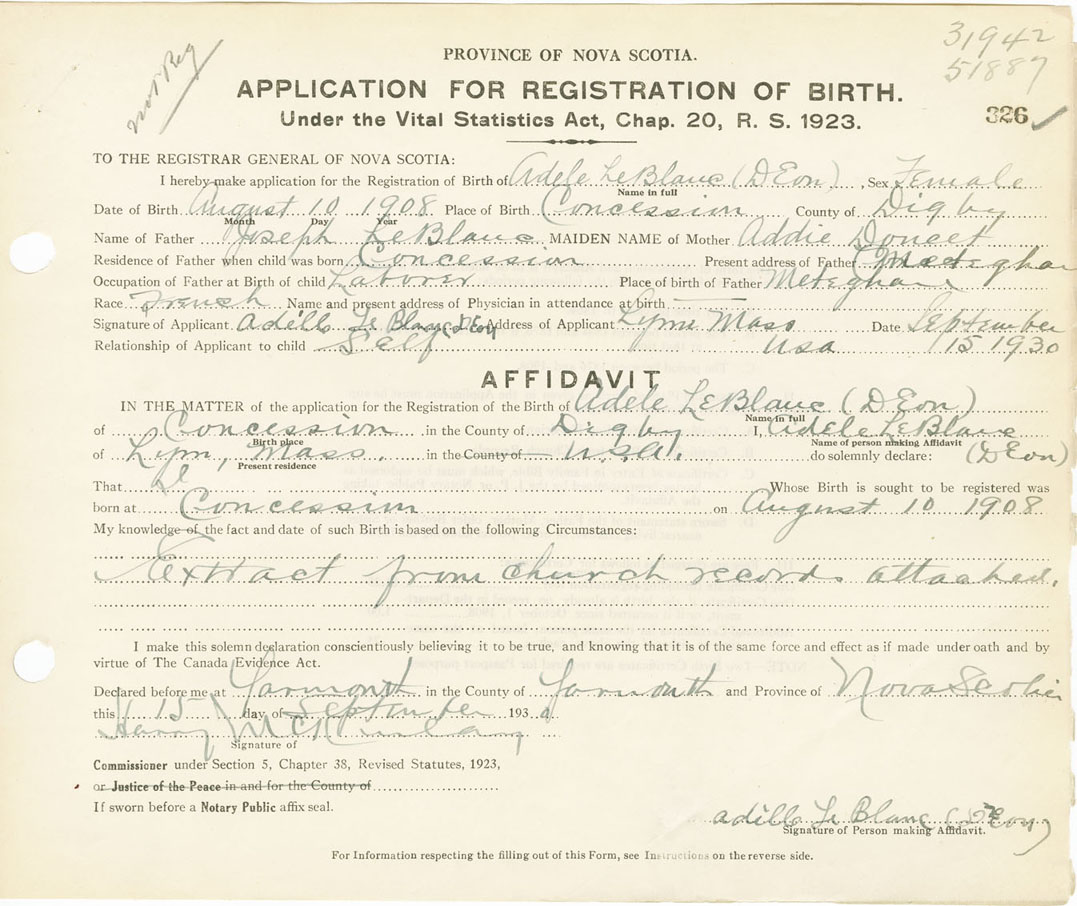 31942
51887
Not Reg
PROVINCE OF NOVA SCOTIA.
APPLICATION FOR REGISTRATION OF BIRTH.
326
Under the Vital Statistics Act, Chap. 20, R. S. 1923.
TO THE REGISTRAR GENERAL OF NOVA SCOTIA:
I hereby make application for the Registration of Birth of Adele LeBlanc (DEon), Sex Female
Name in full
Date of Birth August 10 1908 Place of Birth Concession County of Digby
Month Day Year
Name of Father Joseph LeBlanc MAIDEN NAME of Mother Addie Doucet
Residence of Father when child was born Concession Present address of Father Meteghan
Occupation of Father at Birth of child Laborer Place of birth of Father Meteghan
Race French Name and present address of Physician in attendance at birth
Signature of Applicant Adille Le Blanc (DEon) Address of Applicant Lynn Mass Date September
Relationship of Applicant to child Self USA 15 1930
AFFIDAVIT
IN THE MATTER of the application for the Registration of the Birth of Adele LeBlanc (DEon)
Name in full
of Concession in the County of Digby I, Adele LeBlanc
Birth place Name of person making Affidavit
of Lynn, Mass. in the County of U.S.A. do solemnly declare: (DEon)
Present residence
That I Whose Birth is sought to be registered was
born at Concession on August 10 1908
My knowledge of the fact and date of such Birth is based on the following Circumstances:
Extract from church records attached.
I make this solemn declaration conscientiously believing it to be true, and knowing that it is of the same force and effect as if made under oath and by
virtue of The Canada Evidence Act.
Declared before me at Yarmouth in the County of Yarmouth and Province of Nova Scotia
this 15 day of September 1930.
Harry
Signature of
Commissioner under Section 5, Chapter 38, Revised Statutes, 1923,
or Justice of the Peace in and for the County of
If sworn before a Notary Public affix seal.
Adille Le Blanc (DEon)
Signature of Person making Affidavit.
For Information respecting the filling out of this Form, see Instructions on the reverse side.